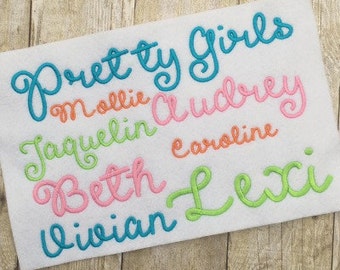 Pretty Girls
Mollie Audrey
Jaquelin Caroline
Beth Lexi
Vivian